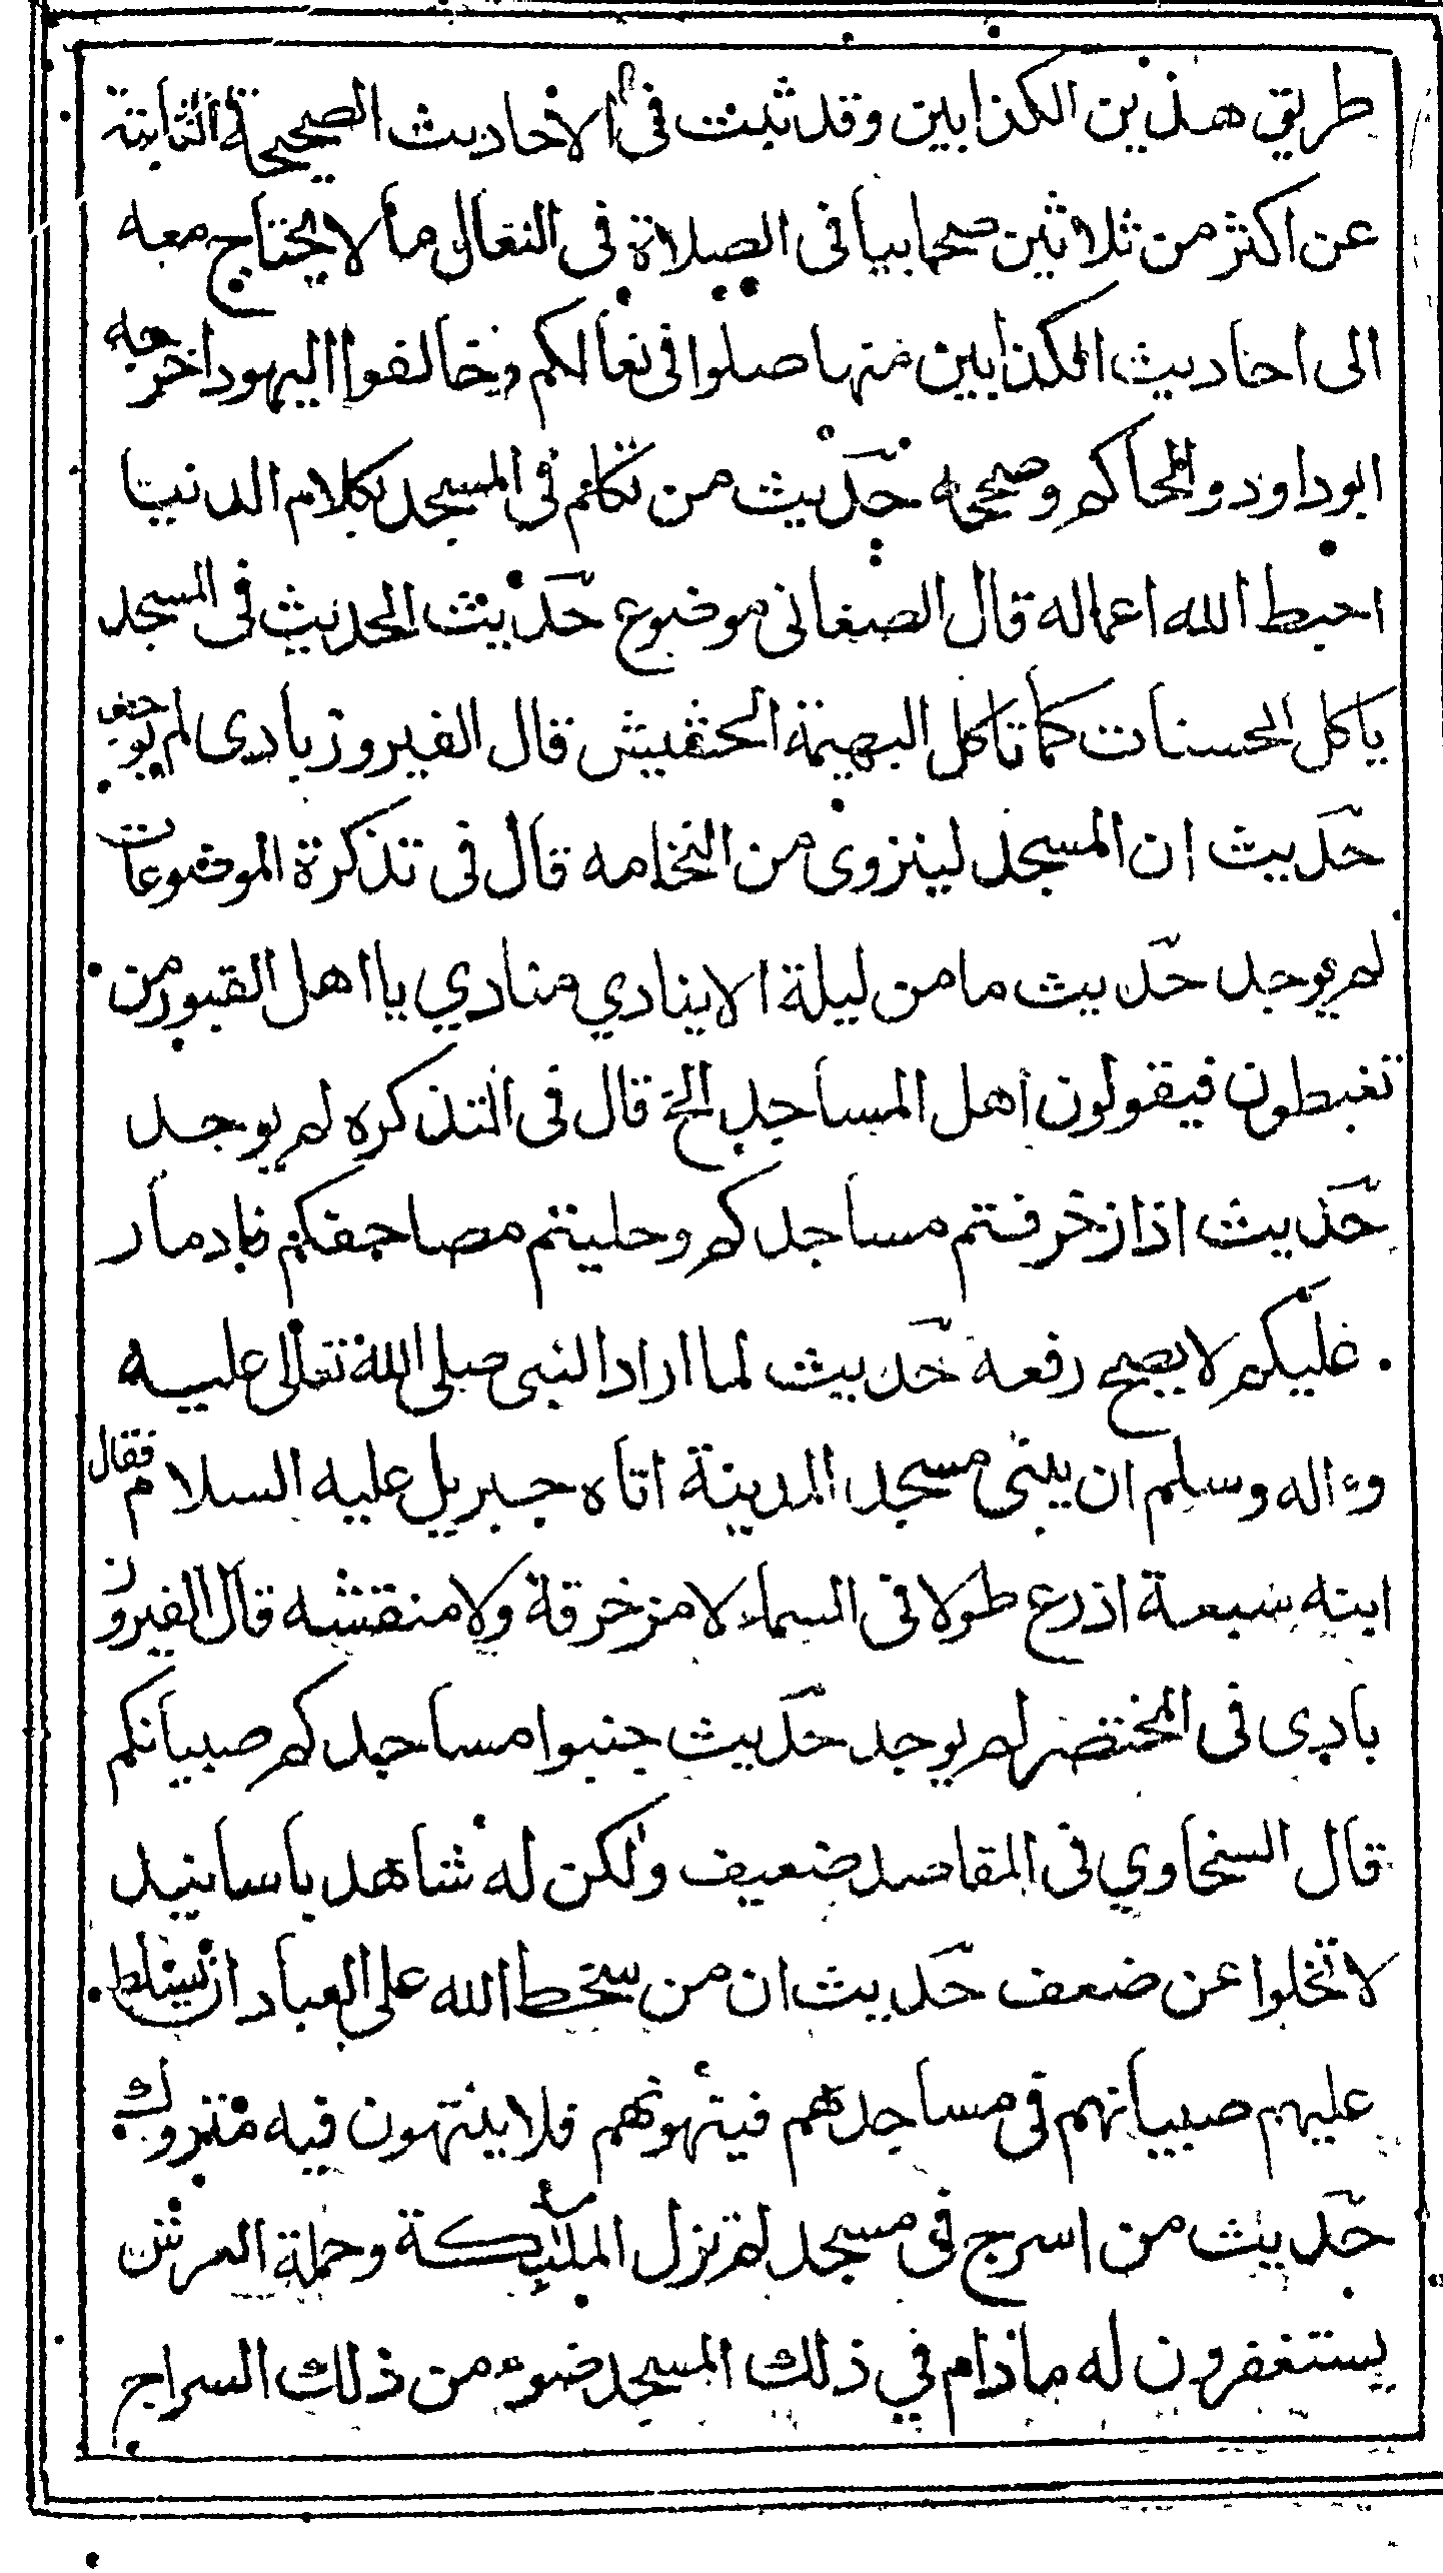 طريق هذين الكذابين وقد ثبت في الاحاديث الصحيحة الثابتة
عن اكثر من ثلاثين صحابيا في الصلاة في النعال ما لا يحتاج معه
الى احاديث الكذابين منها صلوا في نعالكم وخالفوا اليهود اخرجه
ابو داود والحاكم وصححه حديث من تكلم في المسجد بكلام الدنيا
احبط الله اعماله قال الصغاني موضوع حديث الحديث في المسجد
ياكل الحسنات كما تاكل البهيمة الحشيش قال الفيروزبادى لم يوجد
حديث ان المسجد لينزوى من النخامه قال في تذكرة الموضوعات
لم يوجد حديث ما من ليلة الا ينادي منادي يا اهل القبور من
تغبطون فيقولون اهل المساجد الخ قال في التذكره لم يوجد
حديث اذا زخرفتم مساجدكم وحليتم مصاحفكم فالدمار
عليكم لا يصح رفعه حديث لما اراد النبي صلى الله تعالى عليه
وءاله وسلم ان يبنى مسجد المدينة اتاه جبريل عليه السلام فقال
ابنه سبعة اذرع طولا في السماء لا مزخرفة ولا منقشه قال الفيروز
بادى في المختصر لم يوجد حديث جنبوا مساجدكم صبيانكم
قال السخاوي في المقاصد ضعيف ولكن له شاهد باسانيد
لا تخلوا عن ضعف حديث ان من سخط الله على العباد ان يسلط
عليهم صبيانهم في مساجدهم فينهونهم فلا ينتهون فيه متروك
حديث من اسرج في مسجد لم تزل الملئكة وحملة العرش
يستغفرون له مادام في ذلك المسجد ضوء من ذلك السراج